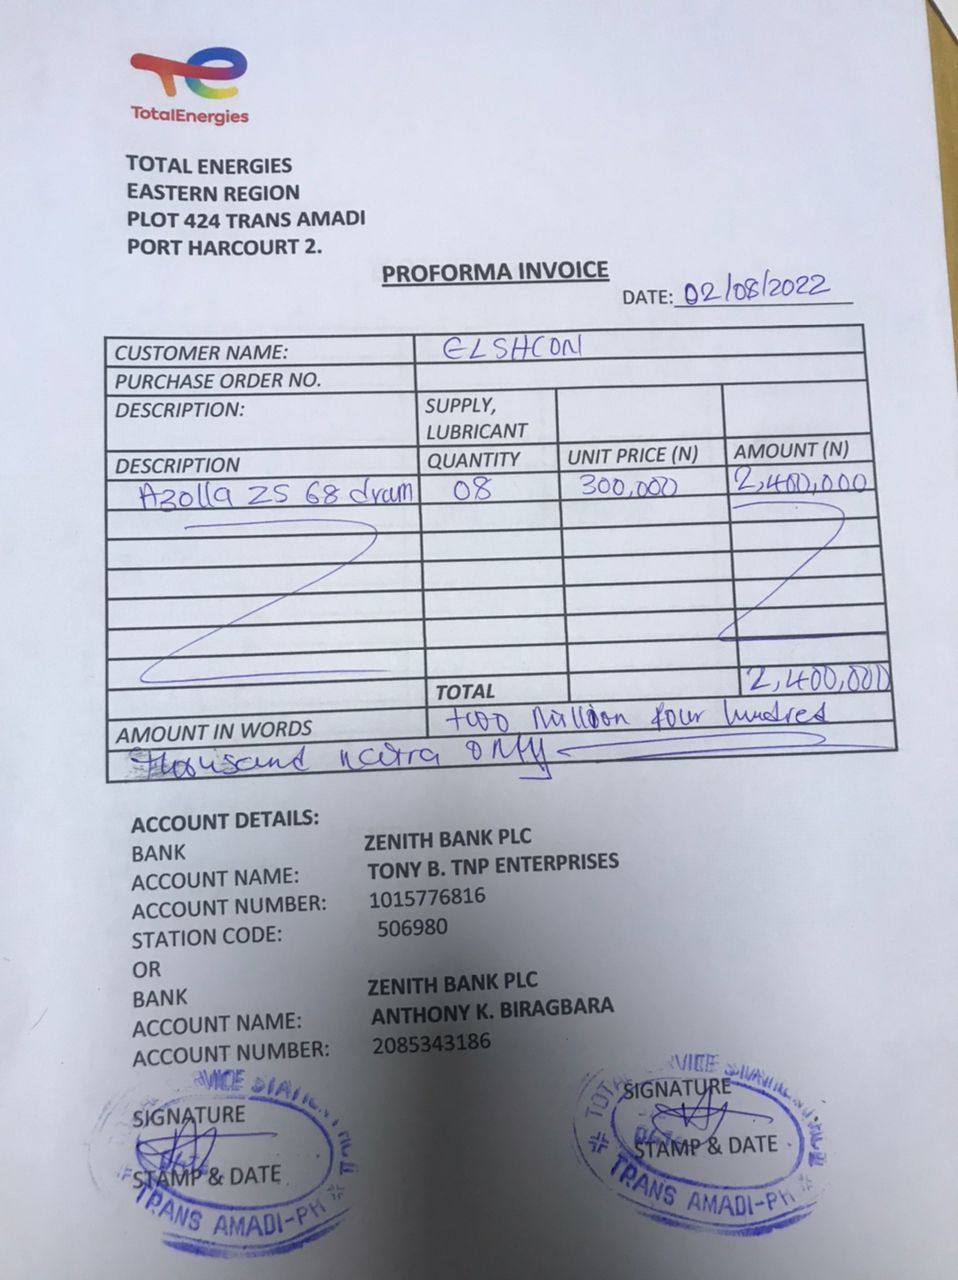 TotalEnergies
TOTAL ENERGIES
EASTERN REGION
PLOT 424 TRANS AMADI
PORT HARCOURT 2.
PROFORMA INVOICE
DATE: 02/08/2022
CUSTOMER NAME: ELSHCON
PURCHASE ORDER NO.
DESCRIPTION: SUPPLY,
LUBRICANT
DESCRIPTION QUANTITY UNIT PRICE (N) AMOUNT (N)
Azolla ZS 68 drum 08 300,000 2,400,000
TOTAL 2,400,000
AMOUNT IN WORDS two million four hundred
thousand naira only
ACCOUNT DETAILS:
BANK ZENITH BANK PLC
ACCOUNT NAME: TONY B. TNP ENTERPRISES
ACCOUNT NUMBER: 1015776816
STATION CODE: 506980
OR
BANK ZENITH BANK PLC
ACCOUNT NAME: ANTHONY K. BIRAGBARA
ACCOUNT NUMBER: 2085343186
SIGNATURE SIGNATURE
STAMP & DATE STAMP & DATE
TRANS AMADI-PH TRANS AMADI-PH